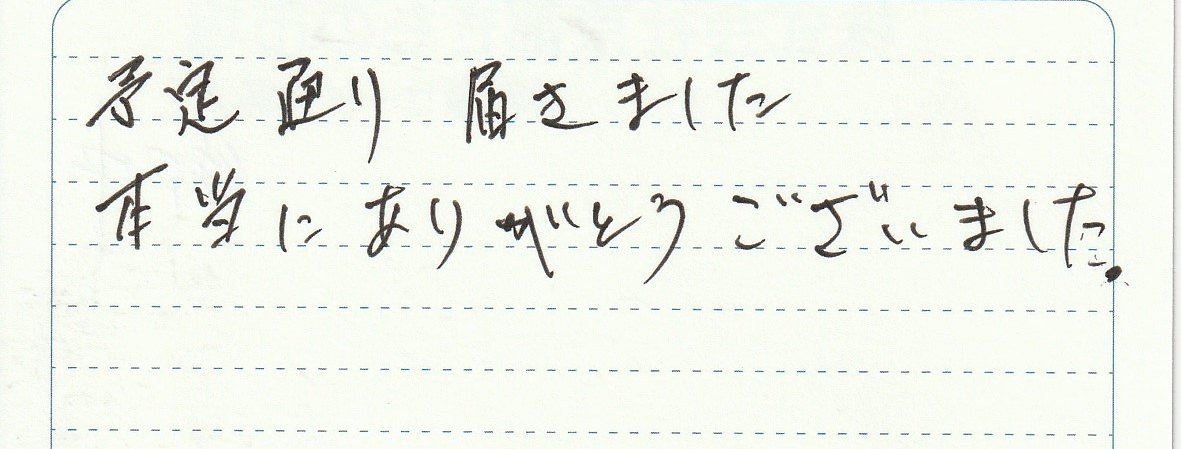 予定通り 届きました
本当に ありがとう ございました.